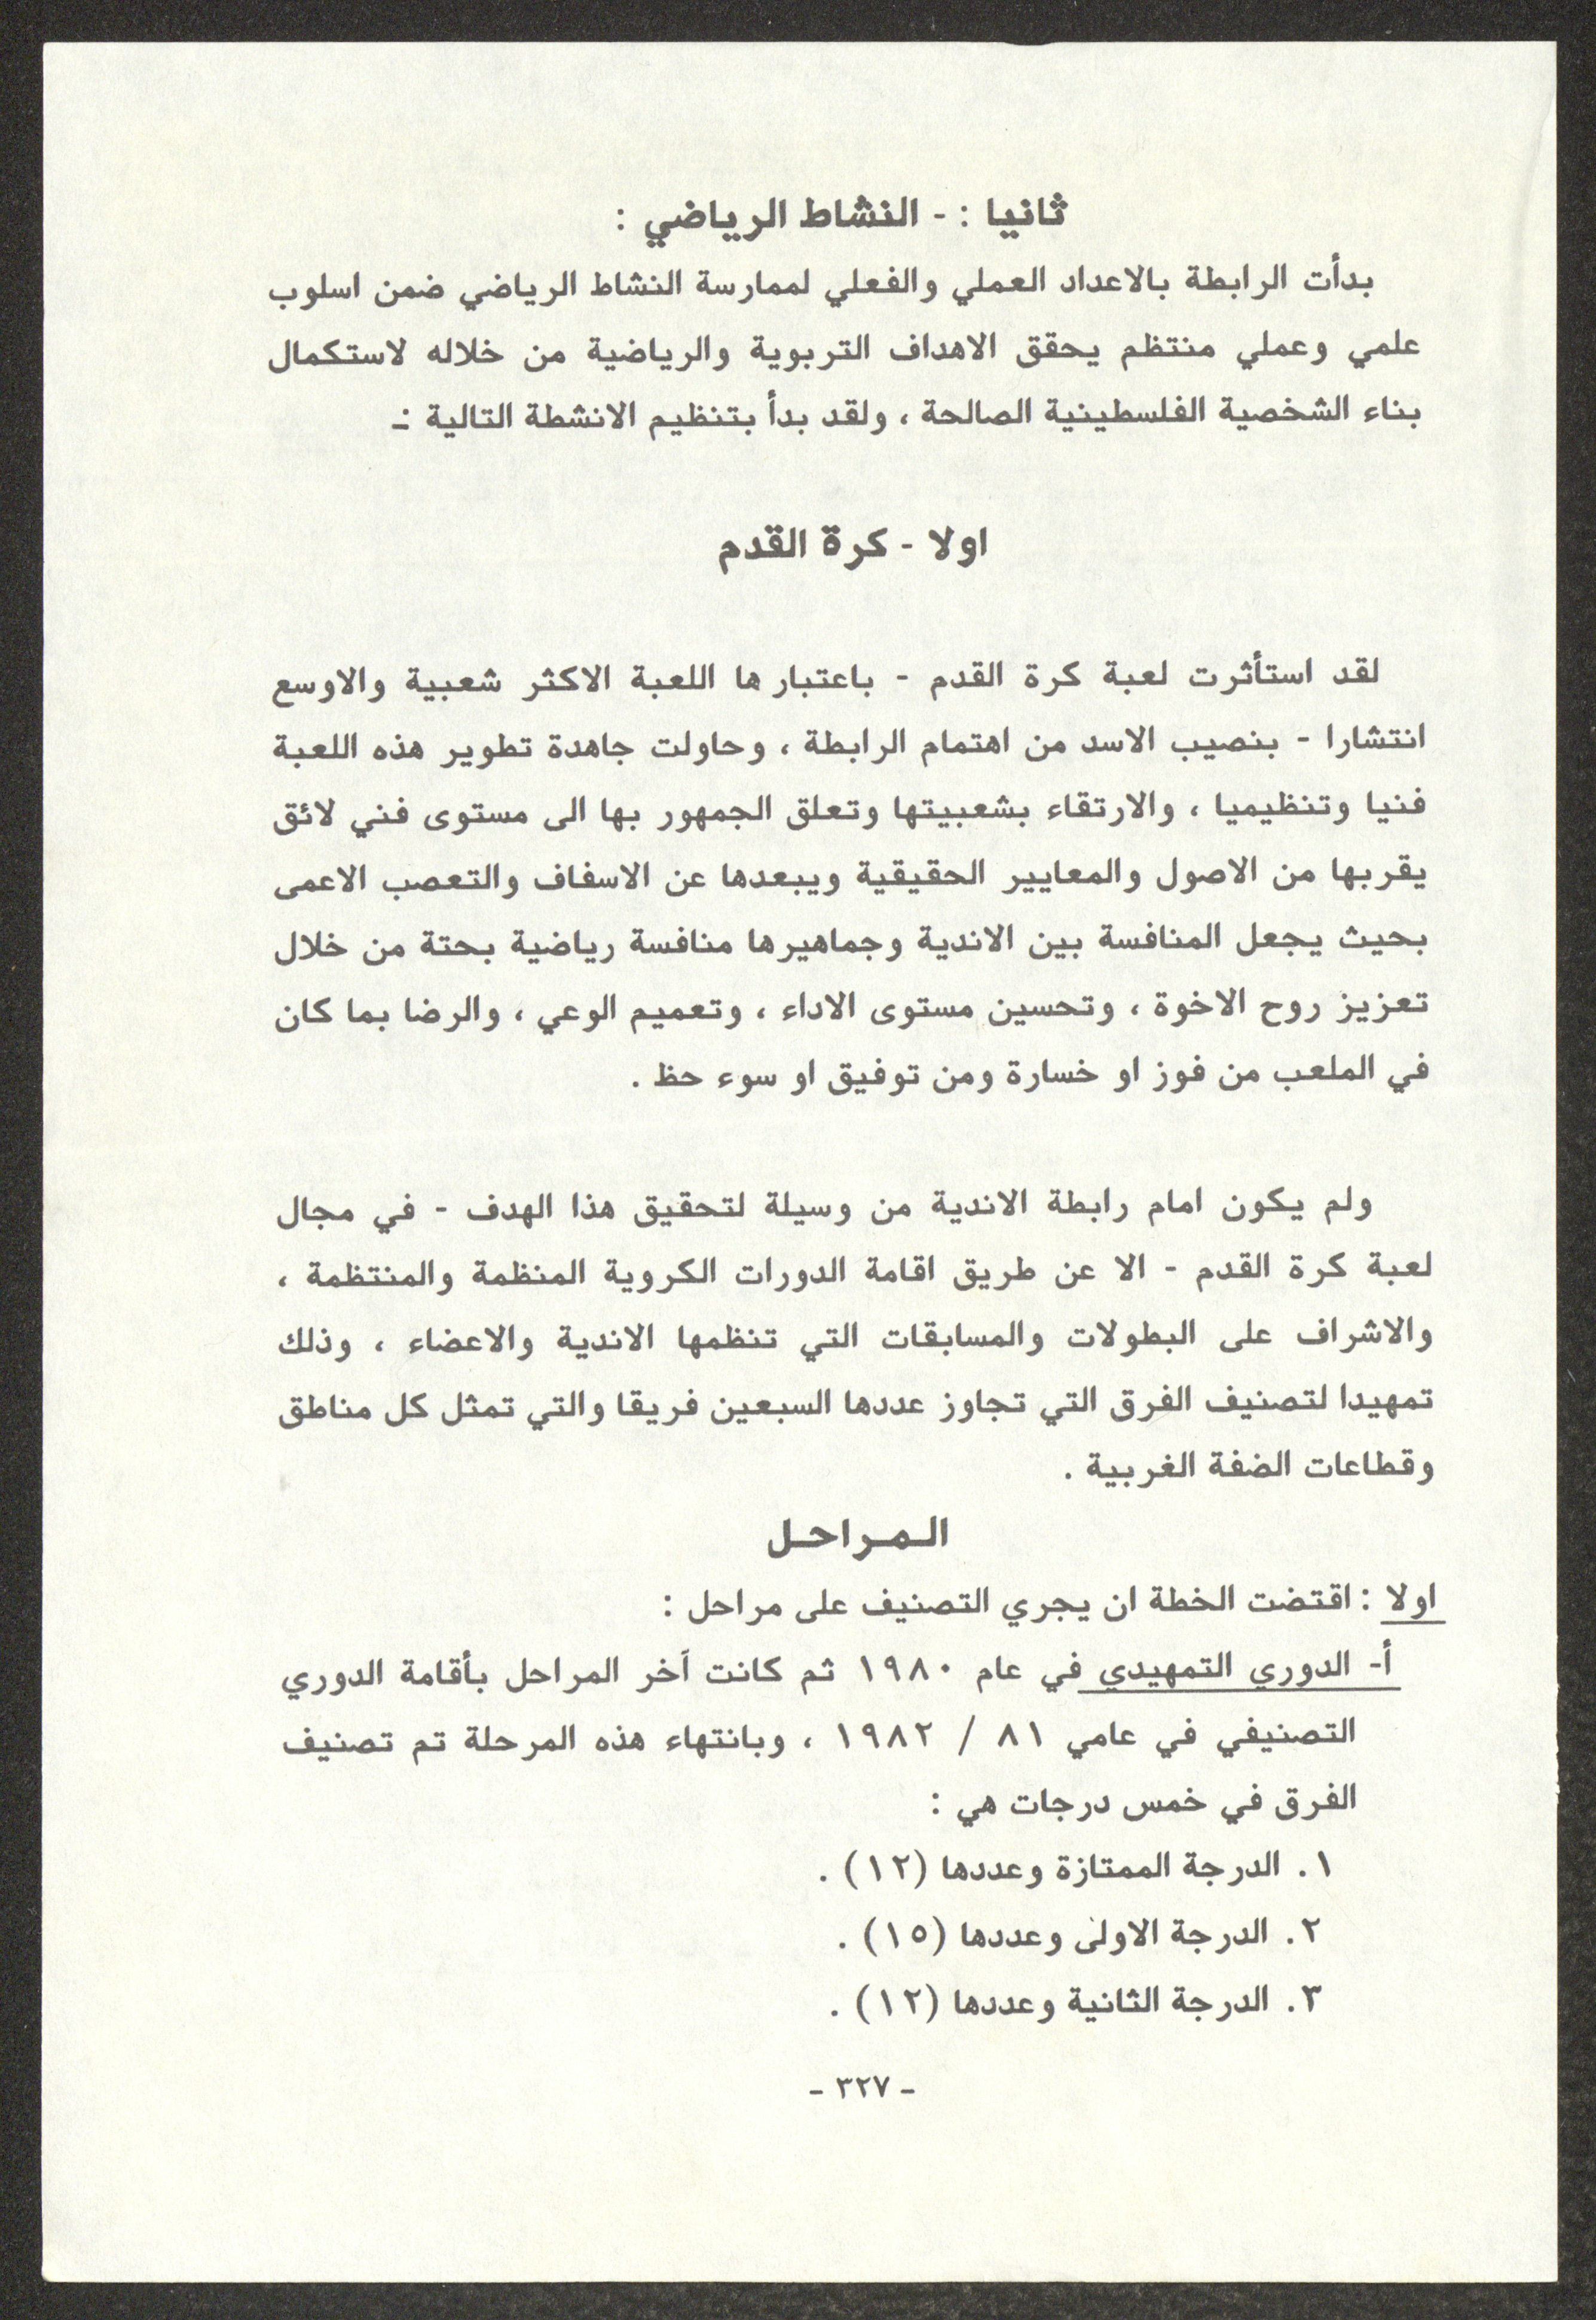 ثانيا : - النشاط الرياضي :
بدأت الرابطة بالاعداد العملي والفعلي لممارسة النشاط الرياضي ضمن اسلوب
علمي وعملي منتظم يحقق الاهداف التربوية والرياضية من خلاله لاستكمال
بناء الشخصية الفلسطينية الصالحة ، ولقد بدأ بتنظيم الانشطة التالية :-
اولا - كرة القدم
لقد استأثرت لعبة كرة القدم - باعتبارها اللعبة الاكثر شعبية والاوسع
انتشارا - بنصيب الاسد من اهتمام الرابطة ، وحاولت جاهدة تطوير هذه اللعبة
فنيا وتنظيميا ، والارتقاء بشعبيتها وتعلق الجمهور بها الى مستوى فني لائق
يقربها من الاصول والمعايير الحقيقية ويبعدها عن الاسفاف والتعصب الاعمى
بحيث يجعل المنافسة بين الاندية وجماهيرها منافسة رياضية بحتة من خلال
تعزيز روح الاخوة ، وتحسين مستوى الاداء ، وتعميم الوعي ، والرضا بما كان
في الملعب من فوز او خسارة ومن توفيق او سوء حظ .
ولم يكون امام رابطة الاندية من وسيلة لتحقيق هذا الهدف - في مجال
لعبة كرة القدم - الا عن طريق اقامة الدورات الكروية المنظمة والمنتظمة ،
والاشراف على البطولات والمسابقات التي تنظمها الاندية والاعضاء ، وذلك
تمهيدا لتصنيف الفرق التي تجاوز عددها السبعين فريقا والتي تمثل كل مناطق
وقطاعات الضفة الغربية .
المراحل
اولا : اقتضت الخطة ان يجري التصنيف على مراحل :
أ- الدوري التمهيدي في عام ١٩٨٠ ثم كانت آخر المراحل بأقامة الدوري
التصنيفي في عامي ٨١ / ١٩٨٢ ، وبانتهاء هذه المرحلة تم تصنيف
الفرق في خمس درجات هي :
١. الدرجة الممتازة وعددها (١٢) .
٢. الدرجة الاولى وعددها (١٥) .
٣. الدرجة الثانية وعددها (١٢) .
- ٣٢٧ -